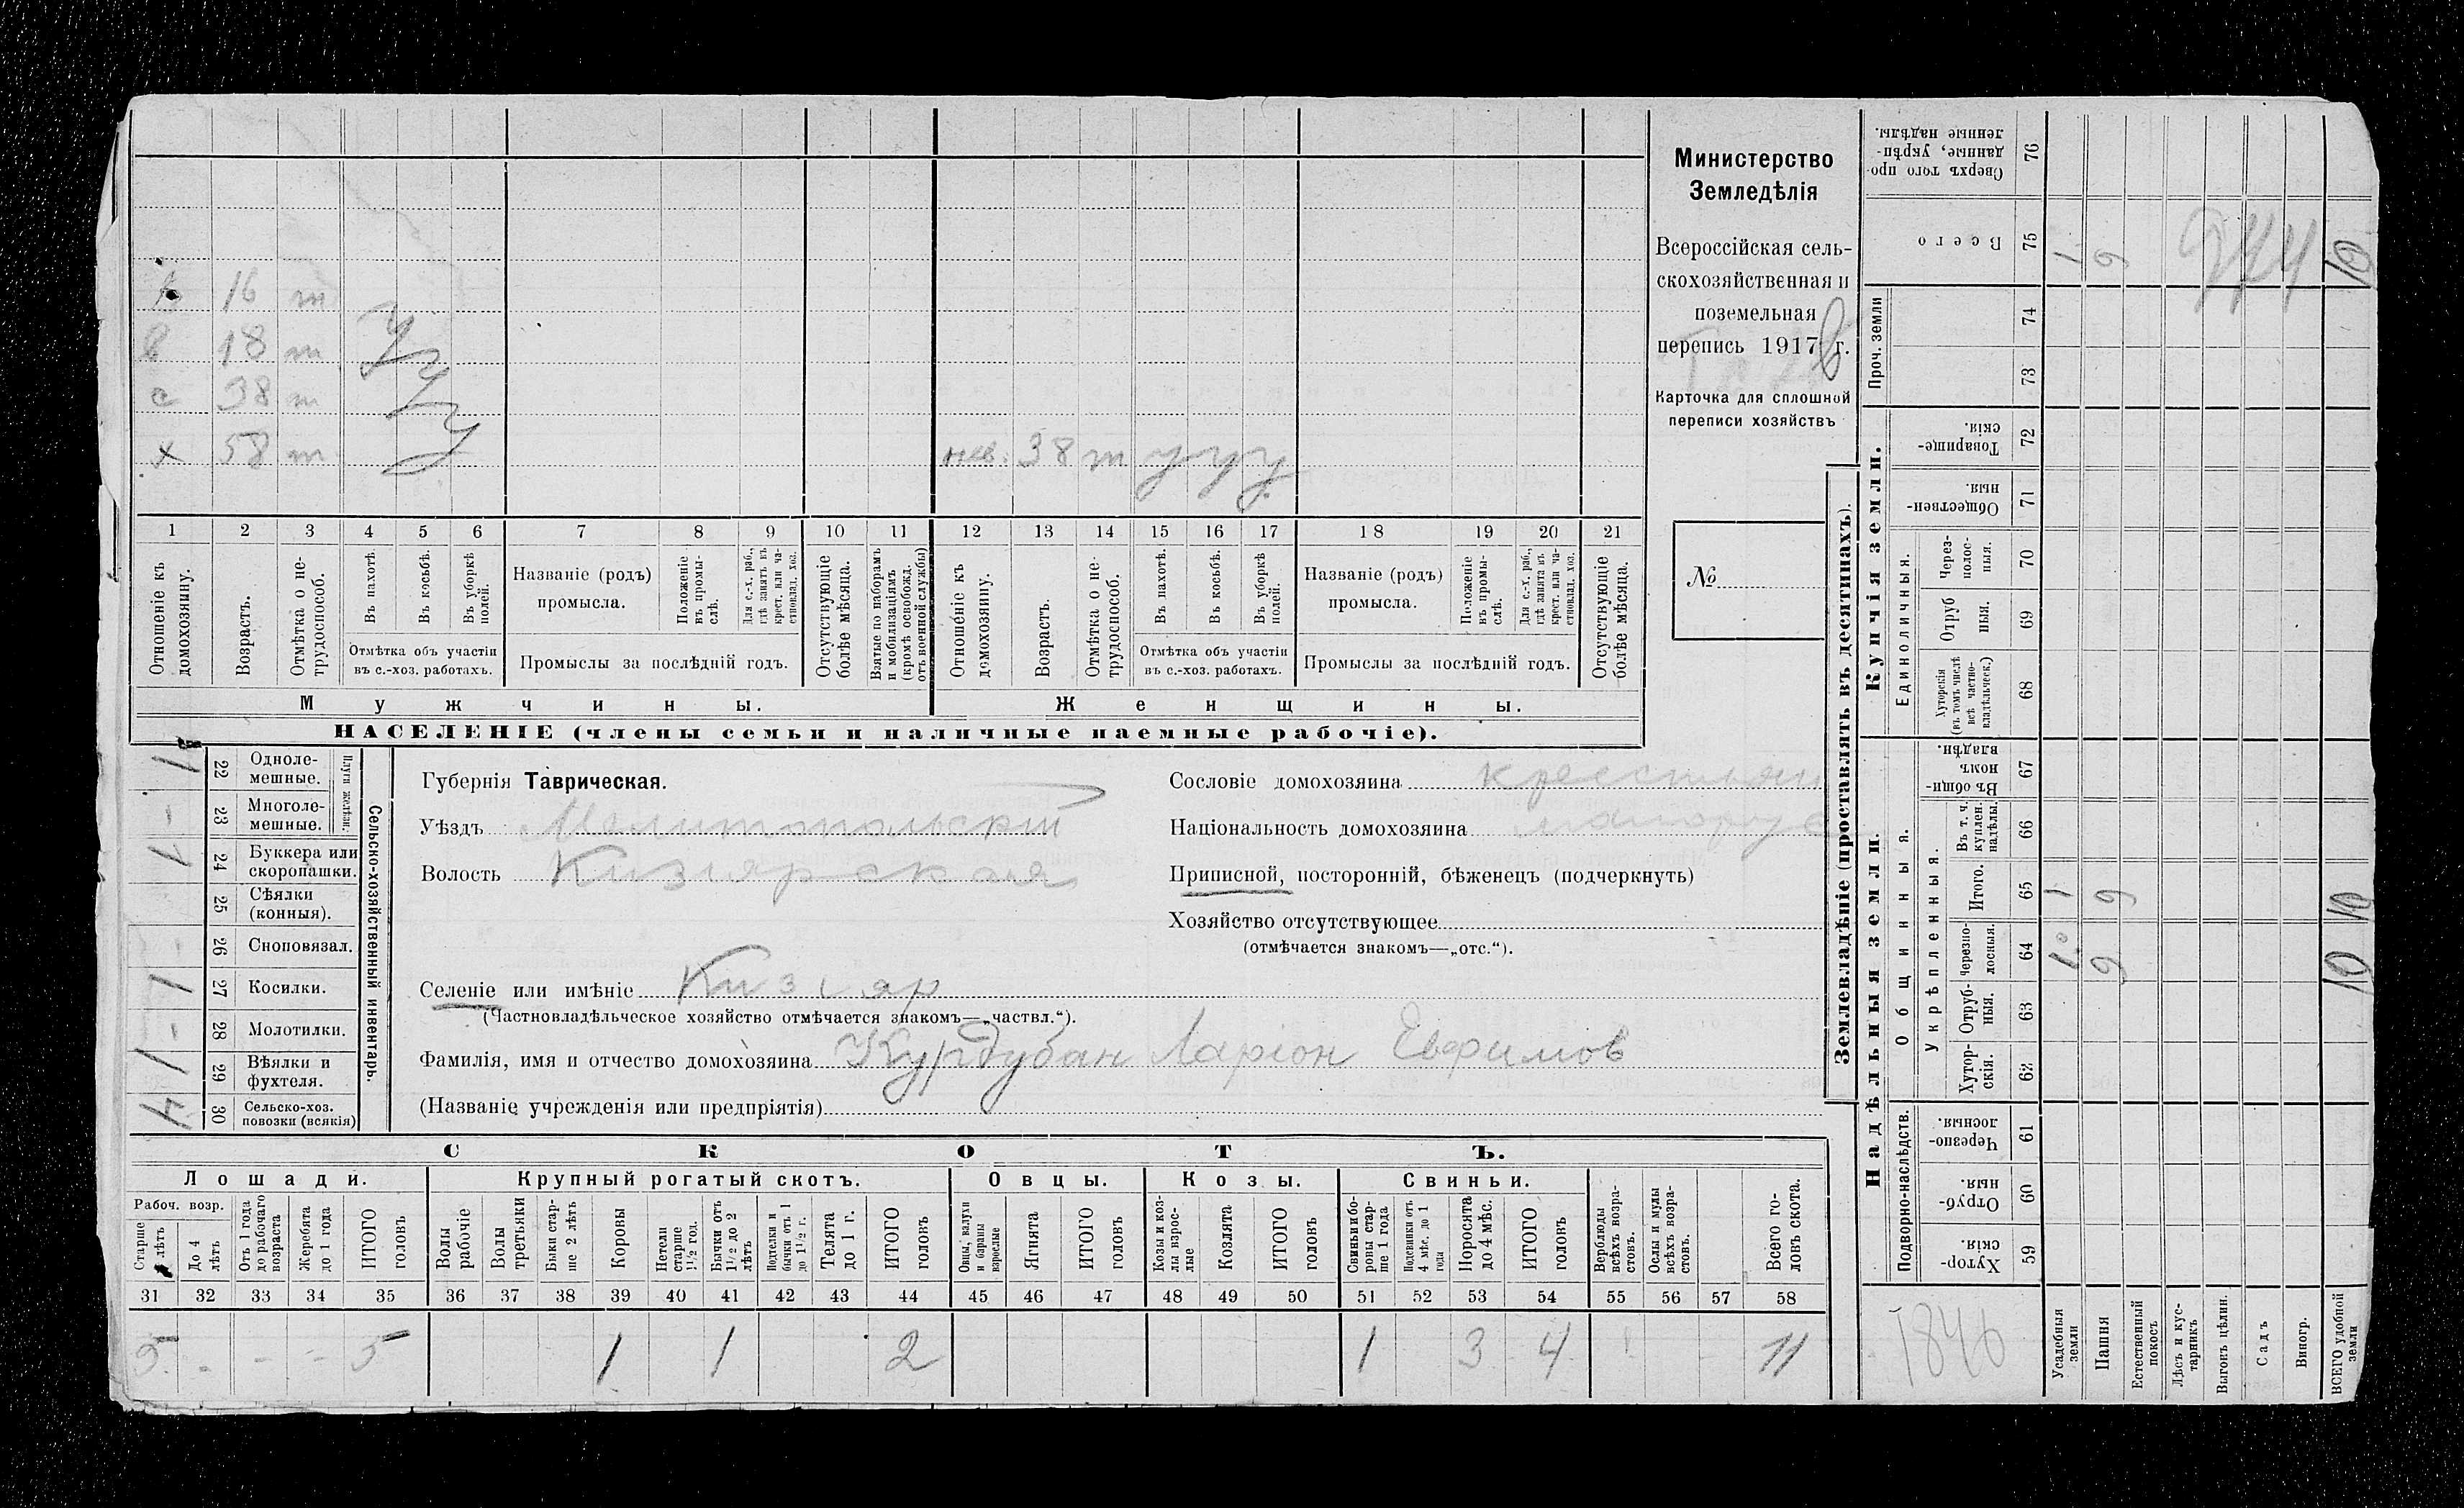 Министерство
Земледѣлія
Всероссійская сель-
скохозяйственная и
поземельная
перепись 1917 г.
Карточка для сплошной
переписи хозяйствъ
№
16 т
в 18 т
с 38 т
х 58 т
38 т у у у
1 2 3 4 5 6 7 8 9 10 11 12 13 14 15 16 17 18 19 20 21
Отношеніе къ домохозяину.
Возрастъ.
Отмѣтка о не-трудоспособ.
Въ пахотѣ.
Въ косьбѣ.
Въ уборкѣ полей.
Отмѣтка объ участіи
въ с.-хоз. работахъ.
Названіе (родъ)
промысла.
Положеніе въ промы-слѣ.
Для с.-х. раб., гдѣ занятъ въ крест. или ча-стновлад. хоз.
Промыслы за послѣдній годъ.
Отсутствующіе болѣе мѣсяца.
Взятые по наборамъ и мобилизаціямъ (кромѣ освобожд. отъ военной службы)
Отношеніе къ домохозяину.
Возрастъ.
Отмѣтка о не-трудоспособ.
Въ пахотѣ.
Въ косьбѣ.
Въ уборкѣ полей.
Отмѣтка объ участіи
въ с.-хоз. работахъ.
Названіе (родъ)
промысла.
Положеніе въ промы-слѣ.
Для с.-х. раб., гдѣ занята въ крест. или ча-стновлад. хоз.
Промыслы за послѣдній годъ.
Отсутствующіе болѣе мѣсяца.
Мужчины.
Женщины.
НАСЕЛЕНІЕ (члены семьи и наличные наемные рабочіе).
Сельско-хозяйственный инвентарь.
Плуги желѣзн.
1 22 Одноле-мешные.
- 23 Многоле-мешные.
1 24 Буккера или скоропашки.
25 Сѣялки (конныя).
- 26 Сноповязал.
1 27 Косилки.
- 28 Молотилки.
1 29 Вѣялки и фухтеля.
30 Сельско-хоз. повозки (всякія)
Губернія Таврическая.
Уѣздъ Мелитопольскій
Волость Кизіярская
Селеніе или имѣніе Кизіяр
(Частновладѣльческое хозяйство отмѣчается знакомъ—„частвл.“).
Фамилія, имя и отчество домохозяина Курдубан Ларіон Евфимов
(Названіе учрежденія или предпріятія)
Сословіе домохозяина крестьян
Національность домохозяина малорус
Приписной, посторонній, бѣженецъ (подчеркнуть)
Хозяйство отсутствующее
(отмѣчается знакомъ—„отс.“).
СКОТЪ.
Лошади.
Крупный рогатый скотъ.
Овцы.
Козы.
Свиньи.
Рабоч. возр.
Старше 4 лѣтъ
До 4 лѣтъ
Отъ 1 года до рабочаго возраста
Жеребята до 1 года
ИТОГО головъ
Волы рабочіе
Волы третьяки
Быки стар-ше 2 лѣтъ
Коровы
Нетели старше 1½ год.
Бычки отъ 1½ до 2 лѣтъ
Подтелки и бычки отъ 1 до 1½ г.
Телята до 1 г.
ИТОГО головъ
Овцы, валухи и бараны взрослые
Ягнята
ИТОГО головъ
Козы и коз-лы взрос-лые
Козлята
ИТОГО головъ
Свиньи бо-ровы стар-ше 1 года
Подсвинки отъ 4 мѣс. до 1 года
Поросята до 4 мѣс.
ИТОГО головъ
Верблюды всѣхъ возра-стовъ.
Ослы и мулы всѣхъ возра-стовъ.
Всего го-ловъ скота.
31 32 33 34 35 36 37 38 39 40 41 42 43 44 45 46 47 48 49 50 51 52 53 54 55 56 57 58
5 - - - 5 1 1 2 1 3 4 11
Землевладѣніе (проставлять въ десятинахъ).
Надѣльныя земли.
Купчія земли.
Проч. земли
Сверхъ того про-данные, укрѣп-ленные надѣлы. 76
Всего 75
74
73
Товарище-скія. 72
Обществен-ныя. 71
Единоличныя.
Через-полос-ныя. 70
Отруб ныя. 69
Хуторскія (въ томъ числѣ всѣ частно-владѣльческ.) 68
Общинныя.
Въ общи-номъ владѣн. 67
Укрѣпленныя.
Въ т. ч. куплен. надѣлы. 66
Итого. 65
Черезпо-лосныя. 64
Отруб-ныя. 63
Хутор-скія. 62
Подворно-наслѣдств.
Черезпо-лосныя. 61
Отруб-ныя. 60
Хутор-скія. 59
1 9 10
1 9 10
1 9 10
1846
Усадебныя земли
Пашня
Естественный покосъ
Лѣсъ и кус-тарникъ
Выгонъ цѣлин.
Садъ
Виногр.
ВСЕГО удобной земли